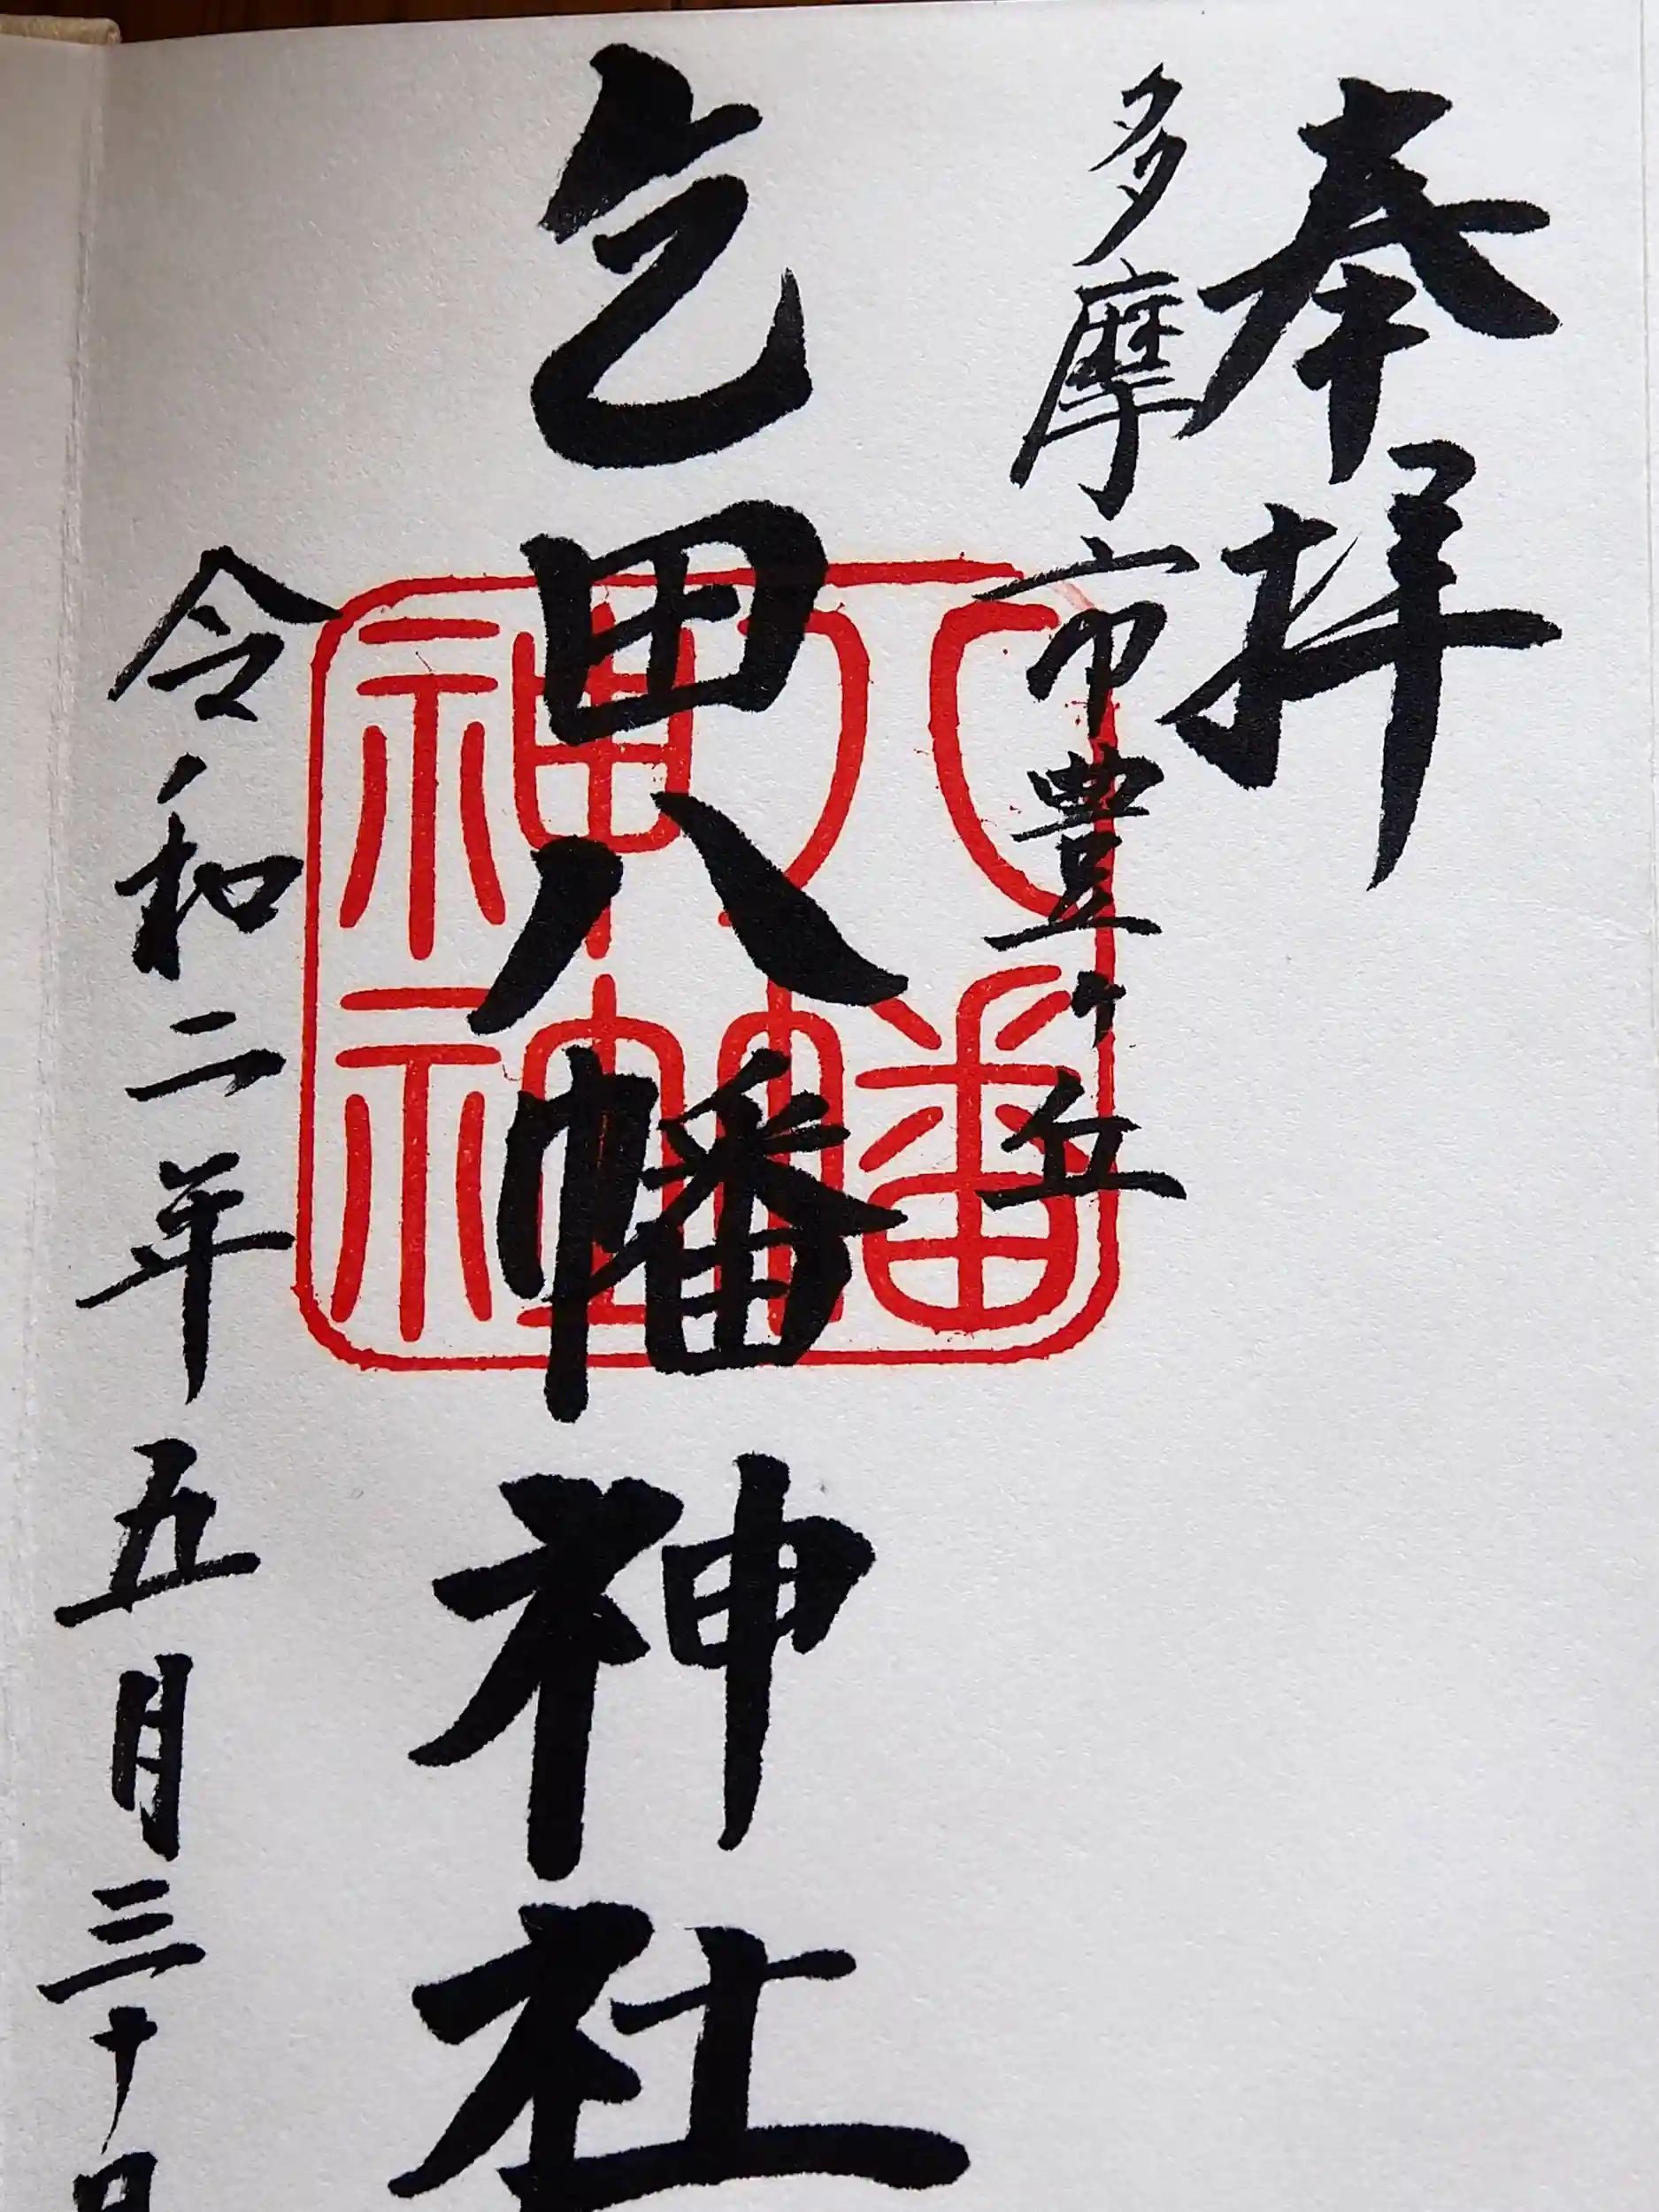 奉拝
多摩市豊ヶ丘
乞田八幡神社
八幡神社
令和二年五月三十日